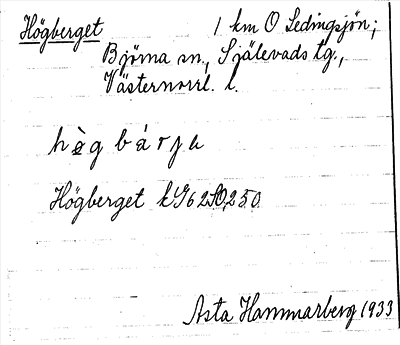 Högberget 1 km O Ledingsjön;
Björna sn, Själevads tg.,
Västernorrl. l.
hògbárja
Högberget kG62SO,250
Asta Hammarberg 1933